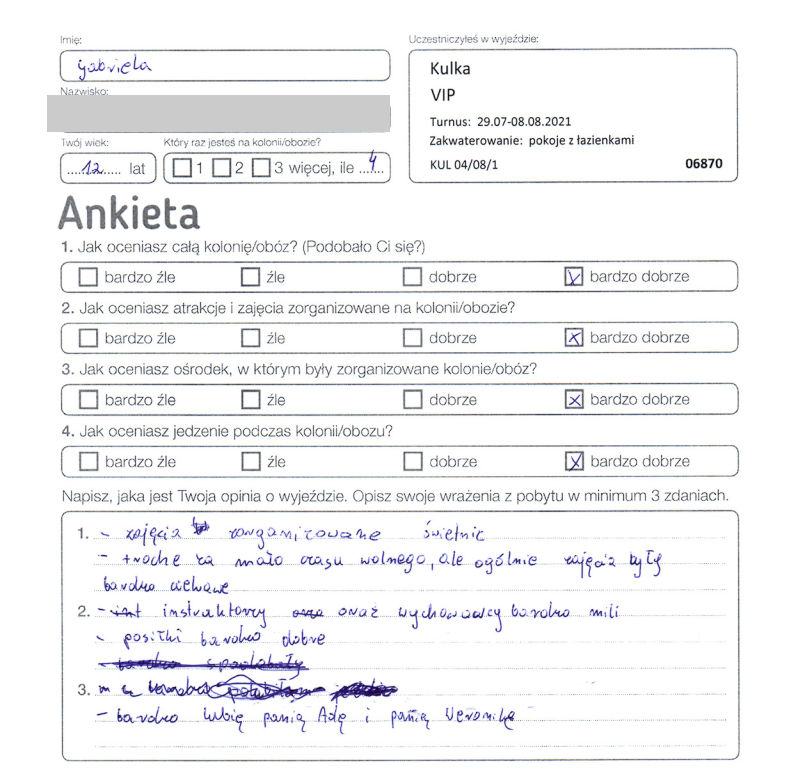 Imię:
Gabriela
Uczestniczyłeś w wyjeździe:
Kulka
VIP
Turnus: 29.07-08.08.2021
Zakwaterowanie: pokoje z łazienkami
KUL 04/08/1 06870
Nazwisko:
Twój wiek: Który raz jesteś na kolonii/obozie?
.....12..... lat 1 2 3 więcej, ile ...4...
Ankieta
1. Jak oceniasz całą kolonię/obóz? (Podobało Ci się?)
bardzo źle źle dobrze x bardzo dobrze
2. Jak oceniasz atrakcje i zajęcia zorganizowane na kolonii/obozie?
bardzo źle źle dobrze x bardzo dobrze
3. Jak oceniasz ośrodek, w którym były zorganizowane kolonie/obóz?
bardzo źle źle dobrze x bardzo dobrze
4. Jak oceniasz jedzenie podczas kolonii/obozu?
bardzo źle źle dobrze x bardzo dobrze
Napisz, jaka jest Twoja opinia o wyjeździe. Opisz swoje wrażenia z pobytu w minimum 3 zdaniach.
1. - zajęcia zorganizowane świetnie
- trochę za mało czasu wolnego, ale ogólnie zajęcia były
bardzo ciekawe
2. - instruktorzy oraz wychowawcy bardzo mili
- posiłki bardzo dobre
- bardzo spodobały
3.
- bardzo lubię panią Adę i panią Weronikę